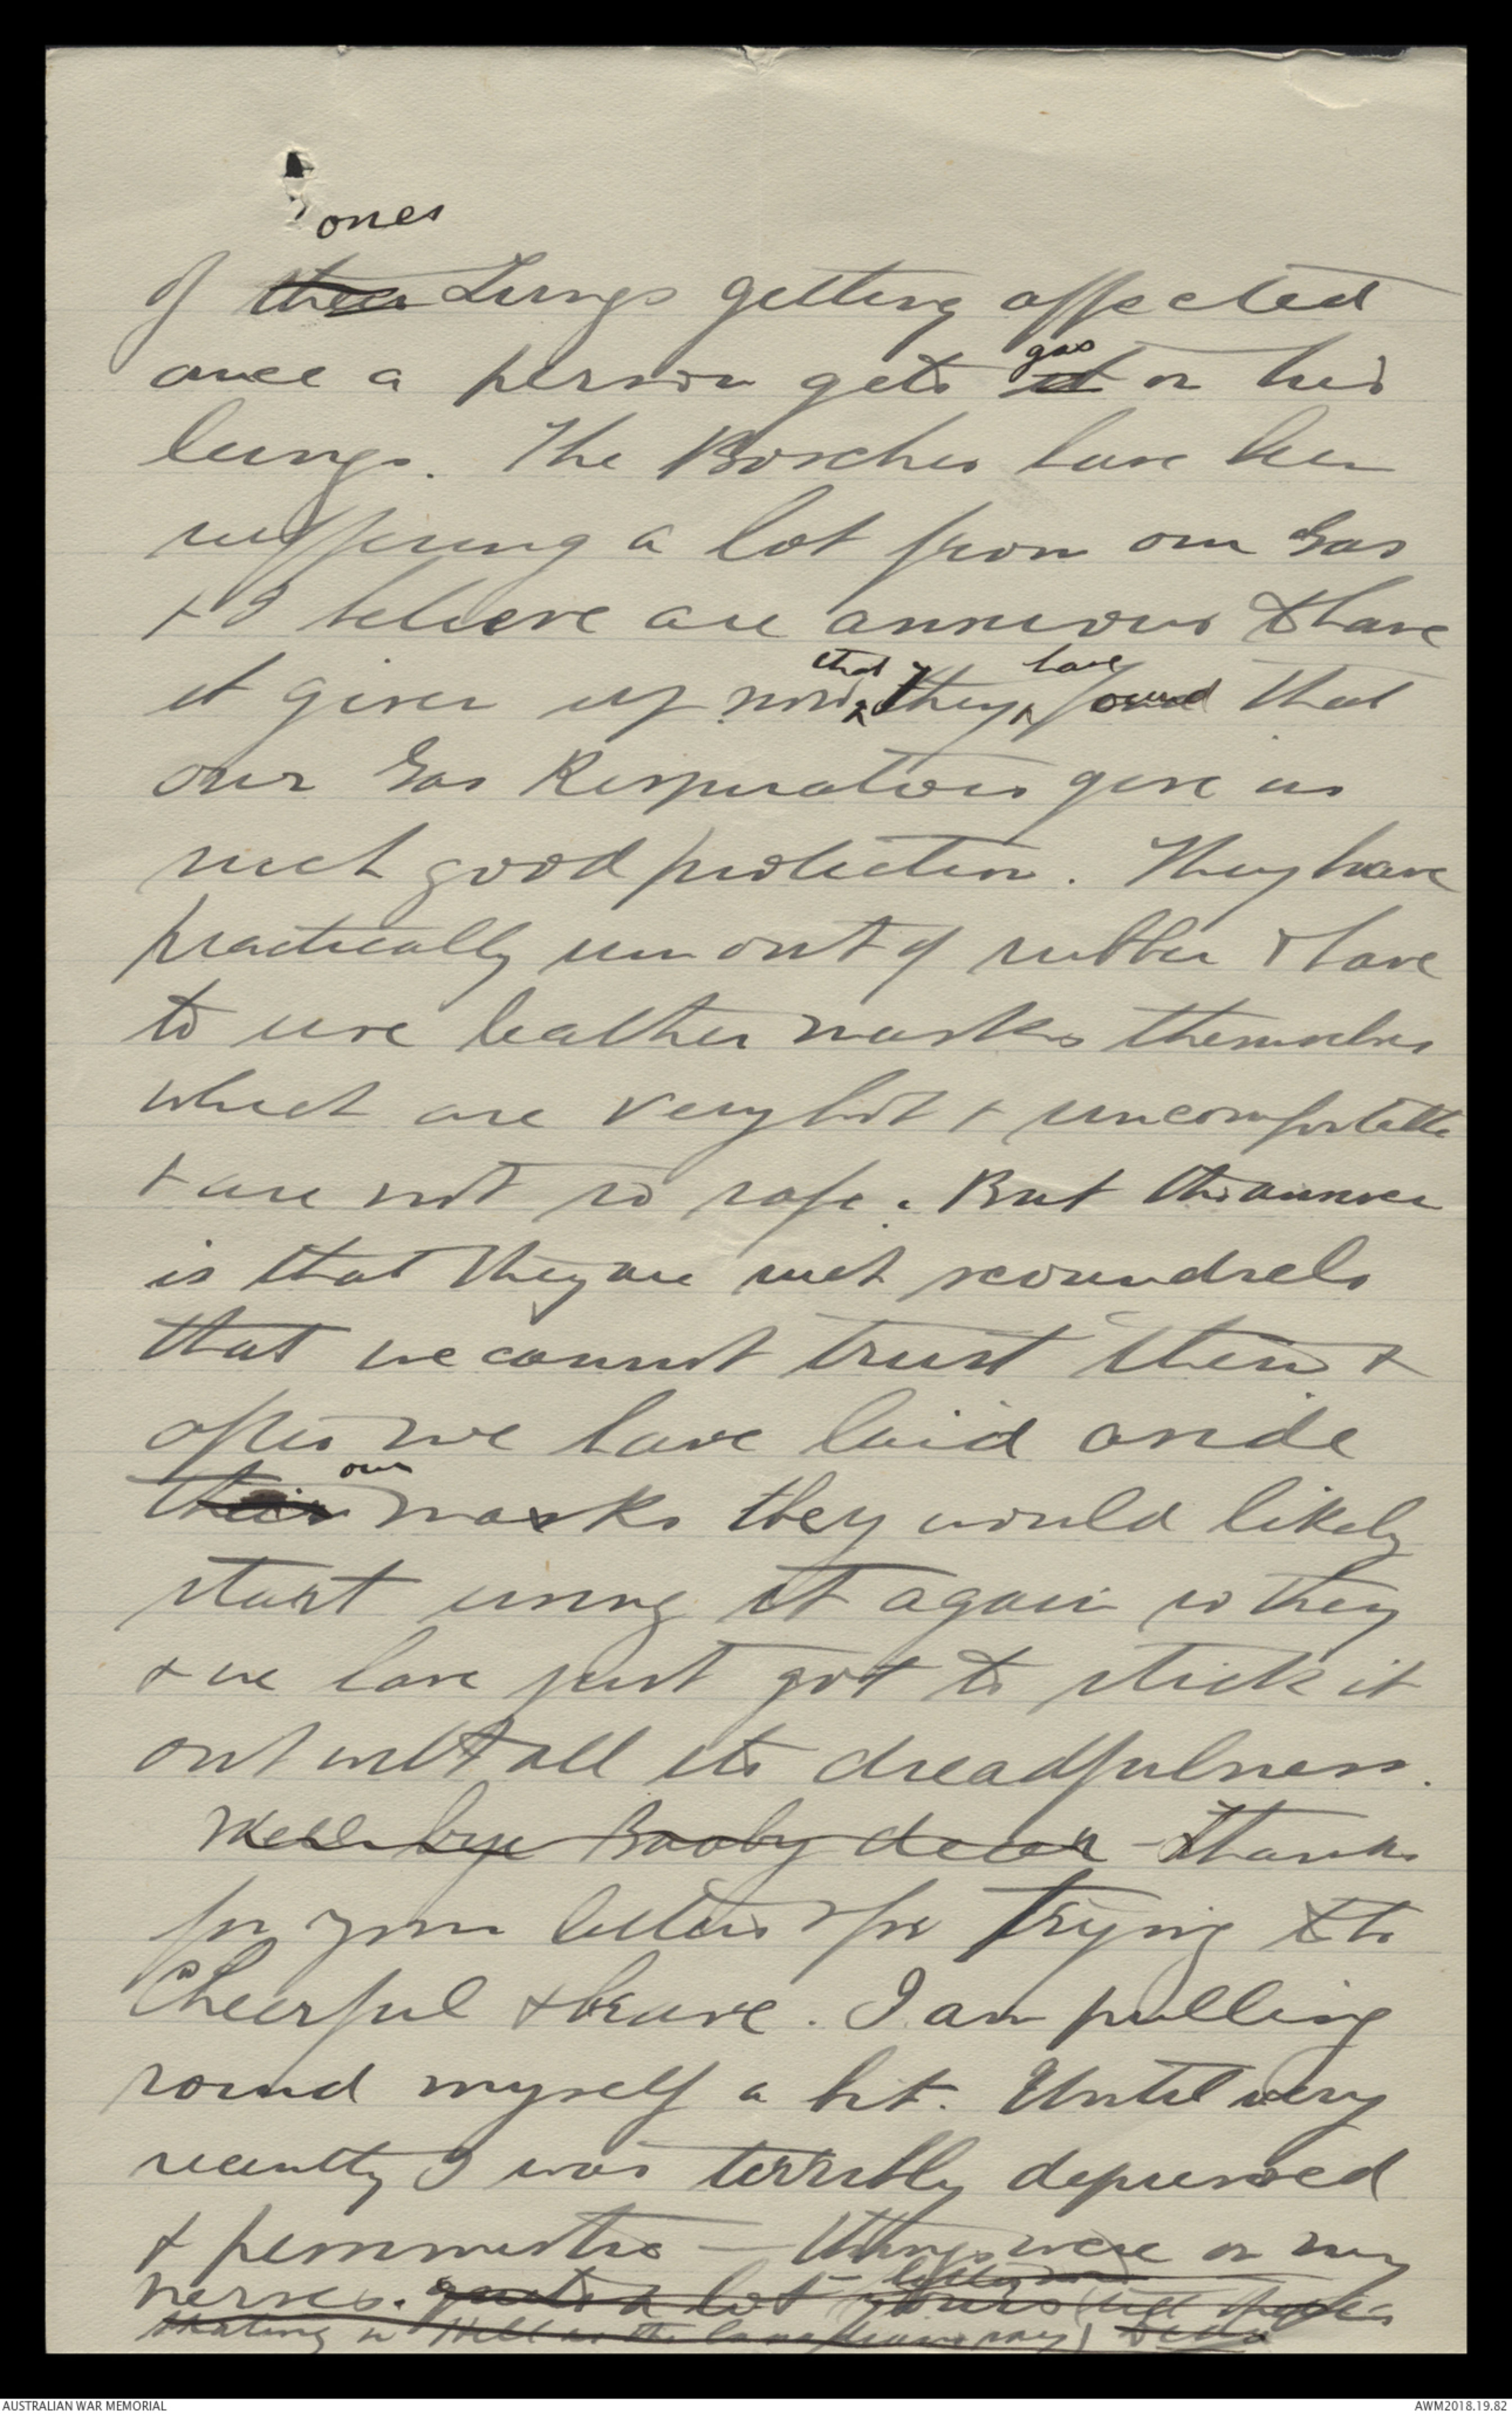 ones
of their Lungs getting affected
once a person gets it gas on his
lungs. The Bosches have been
suffering a lot from our Gas
& I believe are anxious to have
it given up now that they have found that
our Gas Respirators give us
such good protection. They have
practically run out of rubber & have
to use leather masks themselves
which are very hot & uncomfortable
& are not so safe. But the answer
is that they are such scoundrels
that we cannot trust them &
after we have laid aside
their our masks they would likely
start using it again so they
& we have just got to stick it
out with all its dreadfulness.
Well bye Booby dear - thanks
for your letters & for trying to be
Cheerful & brave. I am pulling
round myself a bit. Until very
recently I was terribly depressed
& pessimistic — things were on my
nerves. quite a lot
skating in Hell as the Canadians say)
AUSTRALIAN WAR MEMORIAL
AWM2018.19.82